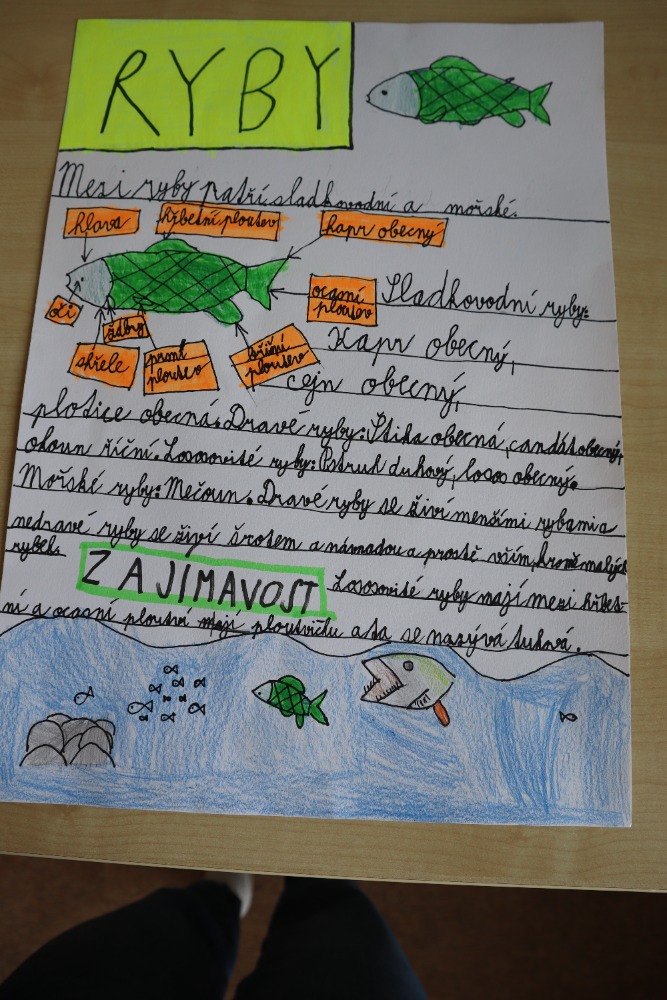 RYBY
Mezi ryby patří sladkovodní a mořské.
hlava
hřbetní ploutev
kapr obecný
oči
žábry
ocasní ploutev
skřele
prsní ploutev
břišní ploutev
Sladkovodní ryby:
Kapr obecný,
cejn obecný,
plotice obecná. Dravé ryby: Štika obecná, candát obecný,
okoun říční. Lososovité ryby: Pstruh duhový, losos obecný.
Mořské ryby: Mečoun. Dravé ryby se živí menšími rybami a
nedravé ryby se živí šrotem a návnadou a prostě vším, kromě malých
rybek.
ZAJÍMAVOST
Lososovité ryby mají mezi hřbet-
ní a ocasní ploutví mají ploutvičku a ta se nazývá tuková.